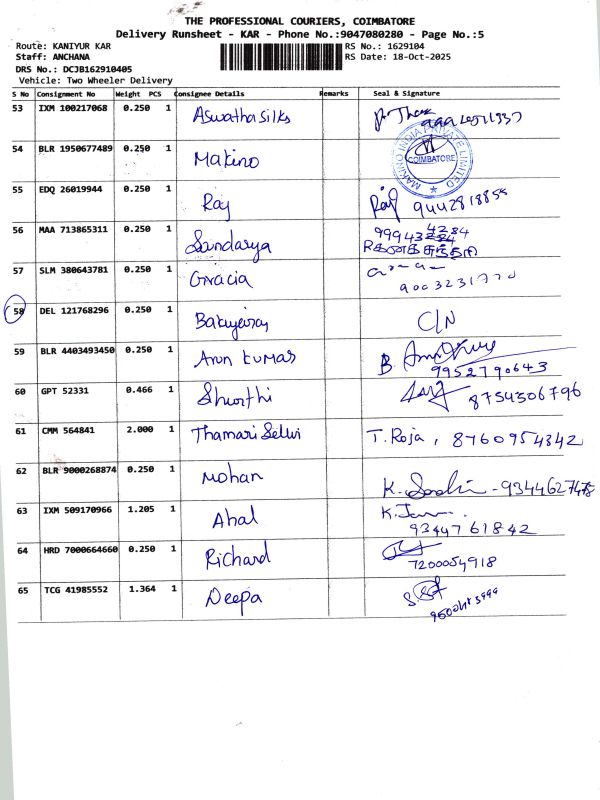 THE PROFESSIONAL COURIERS, COIMBATORE
Delivery Runsheet - KAR - Phone No.:9047080280 - Page No.:5
Route: KANIYUR KAR
RS No.: 1629104
Staff: ANCHANA
RS Date: 18-Oct-2025
DRS No.: DCJB162910405
Vehicle: Two Wheeler Delivery
S No Consignment No Weight PCS Consignee Details Remarks Seal & Signature
53 IXM 100217068 0.250 1 Aswatha Silks
54 BLR 1950677489 0.250 1 Makino
MAKINO INDIA PRIVATE LIMITED
COIMBATORE
55 EDQ 26019944 0.250 1 Raj Raj 9442818855
56 MAA 713865311 0.250 1 Sundarya 99943 4284
57 SLM 380643781 0.250 1 Gracia 9003231770
58 DEL 121768296 0.250 1 C/N
59 BLR 4403493450 0.250 1 Arun Kumar 9952790643
60 GPT 52331 0.466 1 Shruthi 8754306796
61 CMM 564841 2.000 1 Thamari Selvi T. Roja, 8760954342
62 BLR 9000268874 0.250 1 Mohan K. - 9344627475
63 IXM 509170966 1.205 1 Ahal K. 9344761842
64 HRD 7000664660 0.250 1 Richard 7200054918
65 TCG 41985552 1.364 1 Deepa